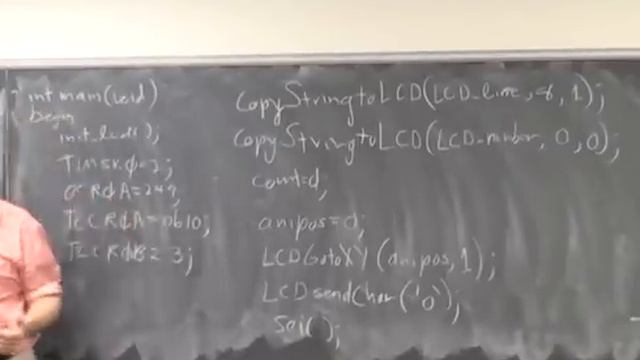 int main(void)
begin
init_lcd();
TIMSK0=2;
OCR0A=249;
TCCR0A=0b10;
TCCR0B=3;
CopyStringtoLCD(LCD_line,8,1);
CopyStringtoLCD(LCD_number,0,0);
count=0;
anipos=0;
LCDGotoXY(anipos,1);
LCDsendChar('o');
sei();